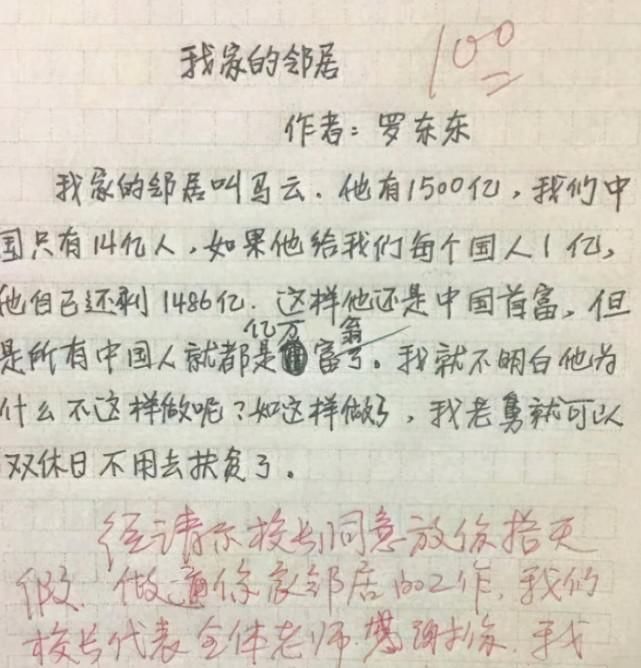 我家的邻居
100
作者：罗东东
我家的邻居叫马云．他有1500亿，我们中
国只有14亿人，如果他给我们每个国人1亿，
他自己还剩1486亿．这样他还是中国首富，但
亿万 翁
是所有中国人就都是富了。我就不明白他为
什么不这样做呢？如这样做了，我老舅就可以
双休日不用去扶贫了。
经请示校长同意放你拾天
假．做通你家邻居的工作，我们
校长代表全体老师感谢你．我